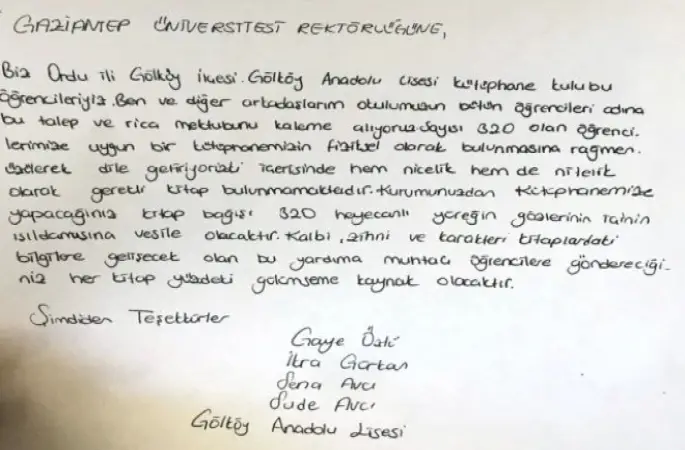 GAZİANTEP ÜNİVERSİTESİ REKTÖRLÜĞÜNE,
Biz Ordu ili Gölköy ilçesi. Gölköy Anadolu Lisesi kütüphane kulubu
öğrencileriyiz. Ben ve diğer arkadaşlarım okulumuzun bütün öğrencileri adına
bu talep ve rica mektubunu kaleme alıyoruz. Sayısı 320 olan öğrenci.
lerimize uygun bir kütüphanemizin fiziksel olarak bulunmasına rağmen.
üzülerek dile getiriyoruzki içerisinde hem nicelik hem de nitelik
olarak gerekli kitap bulunmamaktadır. Kurumunuzdan kütüphanemize
yapacağınız kitap bağışı 320 heyecanlı yüreğin gözlerinin
ışıldamasına vesile olacaktır. Kalbi, zihni ve karakteri kitaplardaki
bilgilere gelişecek olan bu yardıma muhtaç öğrencilere göndereceği-
niz her kitap yüzdeki gülümseme kaynak olacaktır.
Şimdiden Teşekkürler
Gaye
İkra
Sena Avcı
Sude Avcı
Gölköy Anadolu Lisesi